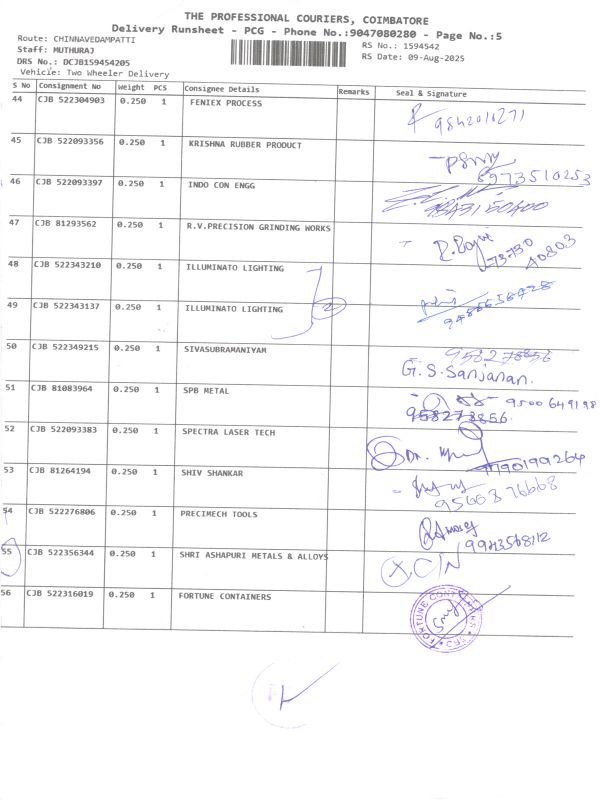 THE PROFESSIONAL COURIERS, COIMBATORE
Delivery Runsheet - PCG - Phone No.:9047080280 - Page No.:5
Route: CHINNAVEDAMPATTI
RS No.: 1594542
Staff: MUTHURAJ
RS Date: 09-Aug-2025
DRS No.: DCJB159454205
Vehicle: Two Wheeler Delivery
S No Consignment No Weight PCS Consignee Details Remarks Seal & Signature
44 CJB 522304903 0.250 1 FENIEX PROCESS
45 CJB 522093356 0.250 1 KRISHNA RUBBER PRODUCT
8973510253
46 CJB 522093397 0.250 1 INDO CON ENGG
47 CJB 81293562 0.250 1 R.V.PRECISION GRINDING WORKS
73730
40803
48 CJB 522343210 0.250 1 ILLUMINATO LIGHTING
49 CJB 522343137 0.250 1 ILLUMINATO LIGHTING 2
50 CJB 522349215 0.250 1 SIVASUBRAMANIYAM
G.S.Sanjanan.
51 CJB 81083964 0.250 1 SPB METAL 9500649198
958273856
52 CJB 522093383 0.250 1 SPECTRA LASER TECH
53 CJB 81264194 0.250 1 SHIV SHANKAR
54 CJB 522276806 0.250 1 PRECIMECH TOOLS
55 CJB 522356344 0.250 1 SHRI ASHAPURI METALS & ALLOYS
56 CJB 522316019 0.250 1 FORTUNE CONTAINERS